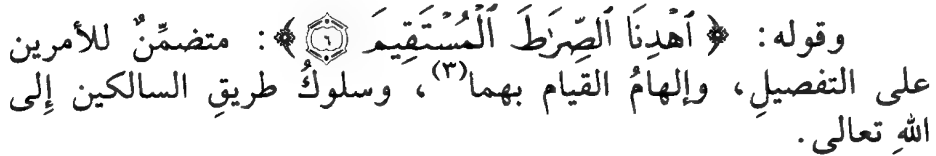 وقوله: ﴿ ٱهْدِنَا ٱلصِّرَٰطَ ٱلْمُسْتَقِيمَ ۝٦ ﴾: متضمِّنٌ للأمرين
على التفصيلِ، وإلهامُ القيام بهما(٣)، وسلوكُ طريقِ السالكين إلى
اللهِ تعالى.